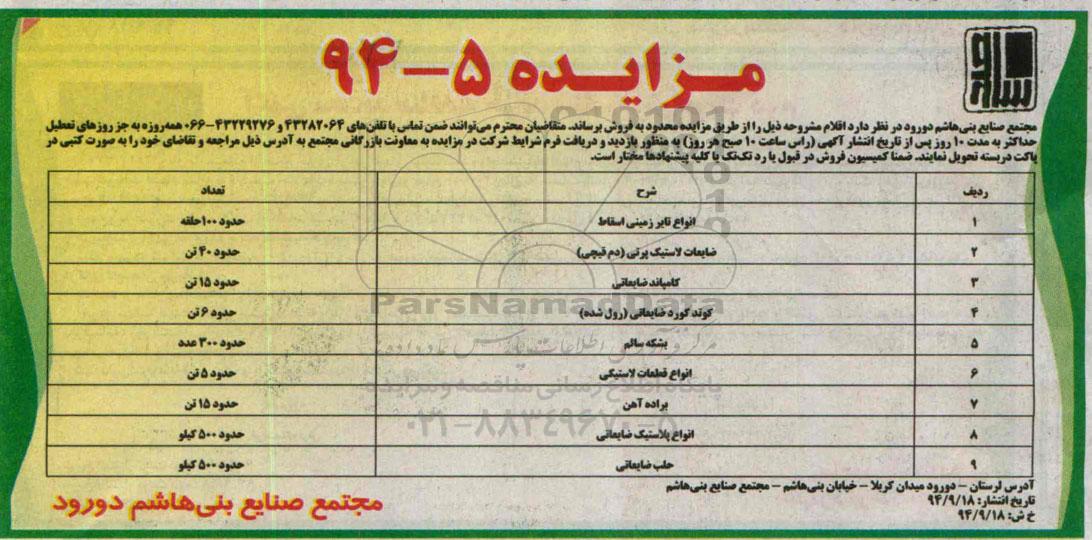 مزایده ۵-۹۴
مجتمع صنایع بنی‌هاشم دورود در نظر دارد اقلام مشروحه ذیل را از طریق مزایده محدود به فروش برساند. متقاضیان محترم می‌توانند ضمن تماس با تلفن‌های ۴۳۲۸۲۰۶۴ و ۴۳۲۲۹۲۷۶-۰۶۶ همه‌روزه به جز روزهای تعطیل
حداکثر به مدت ۱۰ روز پس از تاریخ انتشار آگهی (راس ساعت ۱۰ صبح هر روز) به منظور بازدید و دریافت فرم شرایط شرکت در مزایده به معاونت بازرگانی مجتمع به آدرس ذیل مراجعه و تقاضای خود را به صورت کتبی در
پاکت دربسته تحویل نمایند. ضمنا کمیسیون فروش در قبول یا رد تک‌تک یا کلیه پیشنهادها مختار است.
ردیف شرح تعداد
۱ انواع تایر زمینی اسقاط حدود ۱۰۰حلقه
۲ ضایعات لاستیک پرتی (دم قیچی) حدود ۴۰ تن
۳ کامپاند ضایعاتی حدود ۱۵ تن
۴ کوتد کورد ضایعاتی (رول شده) حدود ۶ تن
۵ بشکه سالم حدود ۳۰۰ عدد
۶ انواع قطعات لاستیکی حدود ۵ تن
۷ براده آهن حدود ۱۵ تن
۸ انواع پلاستیک ضایعاتی حدود ۵۰۰ کیلو
۹ حلب ضایعاتی حدود ۵۰۰ کیلو
ParsNamadData
پایگاه اطلاع رسانی مناقصه و مزایده
۰۲۱-۸۸۳۴۹۶۷۰-۵
آدرس لرستان – دورود میدان کربلا – خیابان بنی‌هاشم – مجتمع صنایع بنی‌هاشم
تاریخ انتشار: ۹۴/۹/۱۸
خ ش: ۹۴/۹/۱۸
مجتمع صنایع بنی‌هاشم دورود